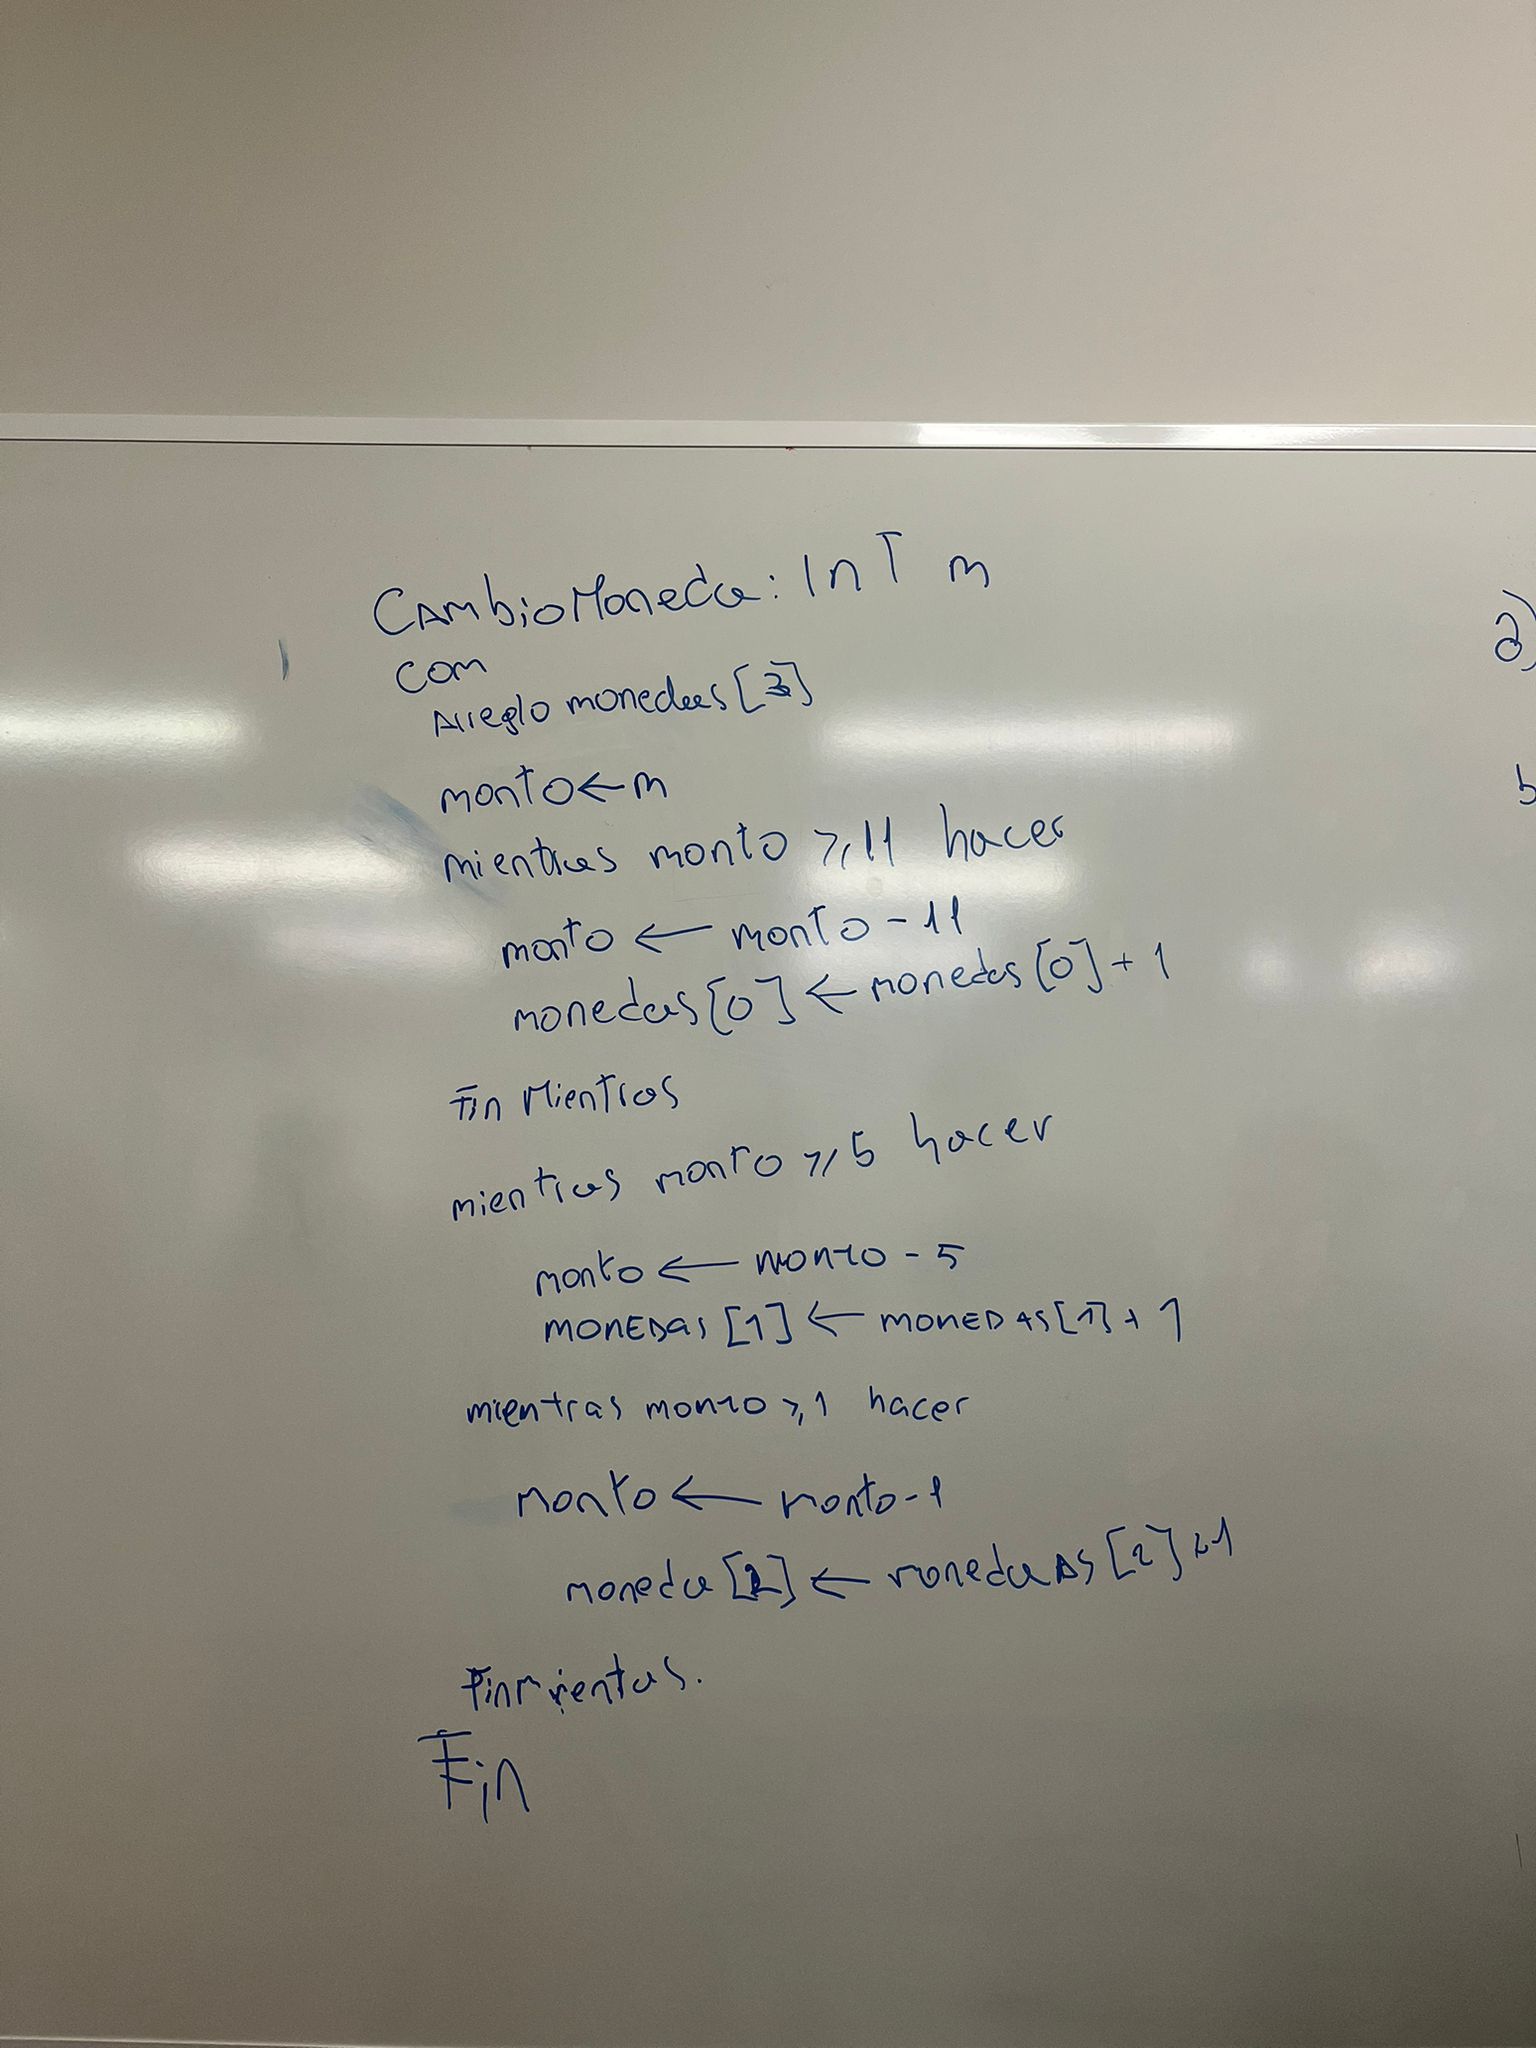 CambioMoneda: InT m
com
Arreglo monedas[3]
monto ← m
mientras monto ≥ 11 hacer
monto ← monto - 11
monedas[0] ← monedas[0] + 1
Fin Mientras
mientras monto ≥ 5 hacer
monto ← monto - 5
MONEDAS [1] ← MONEDAS[1] + 1
mientras monto ≥ 1 hacer
monto ← monto - 1
moneda [2] ← monedaAS [2] + 1
Finmientas.
Fin
a)
b